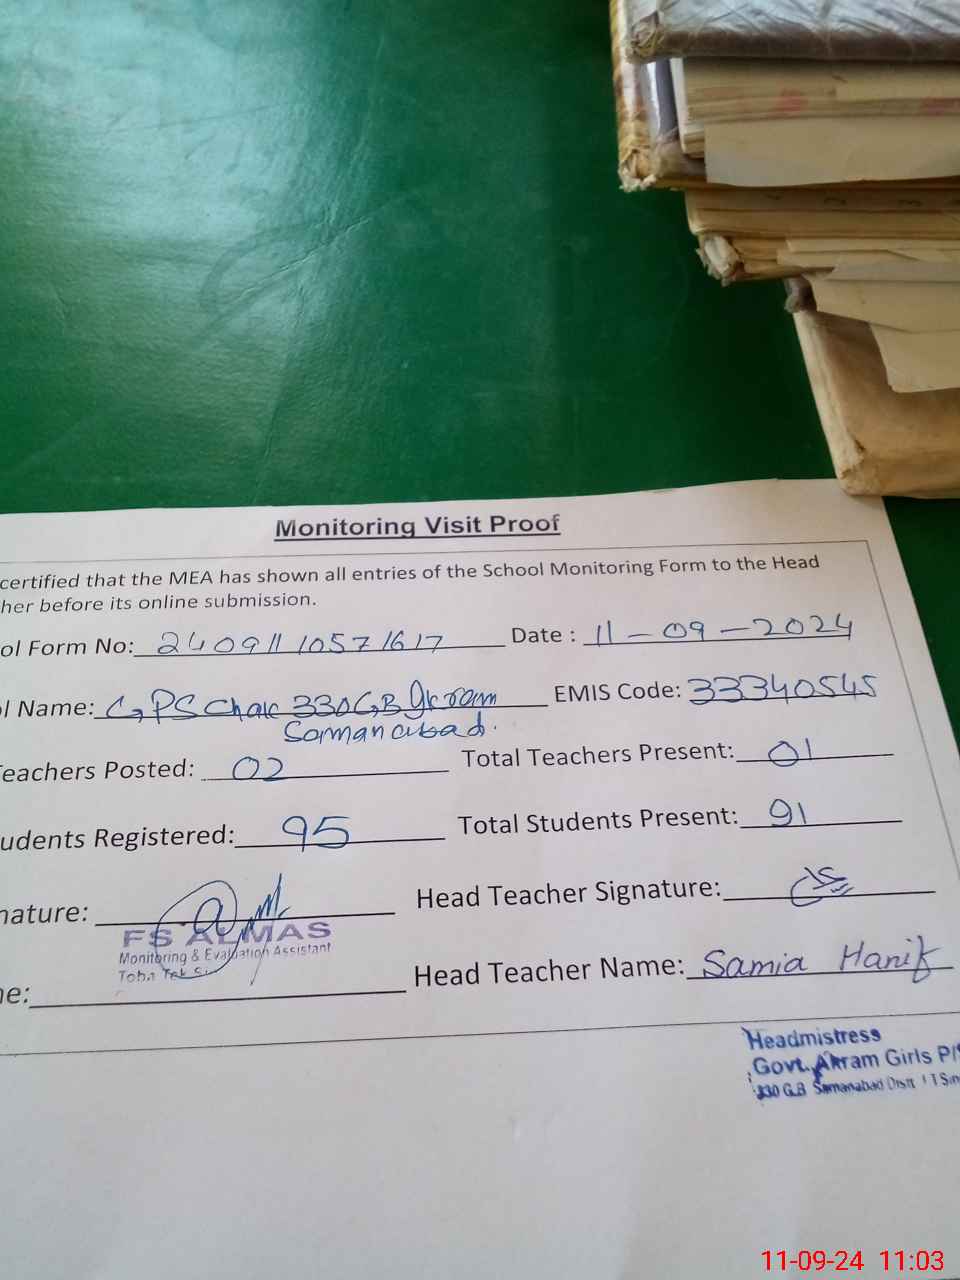 Monitoring Visit Proof
certified that the MEA has shown all entries of the School Monitoring Form to the Head
her before its online submission.
ol Form No: 24091110571617 Date : 11-09-2024
l Name: GPS Chak 330GB Ikram EMIS Code: 33340545
Samanabad.
Teachers Posted: 02 Total Teachers Present: 01
udents Registered: 95 Total Students Present: 91
nature: Head Teacher Signature:
FS ALMAS
Monitoring & Evaluation Assistant
Toba Tek Si
ne: Head Teacher Name: Samia Hanif
Headmistress
Govt. Akram Girls P/
330 G.B Samanabad Distt T T Sin
11-09-24 11:03